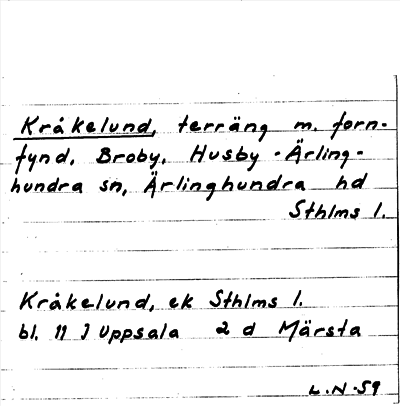 Kråkelund, terräng m. forn-
fynd, Broby, Husby-Ärling-
hundra sn, Ärlinghundra hd
Sthlms l.
Kråkelund, ek Sthlms l.
bl. 11 I Uppsala 2 d Märsta
L.N-59